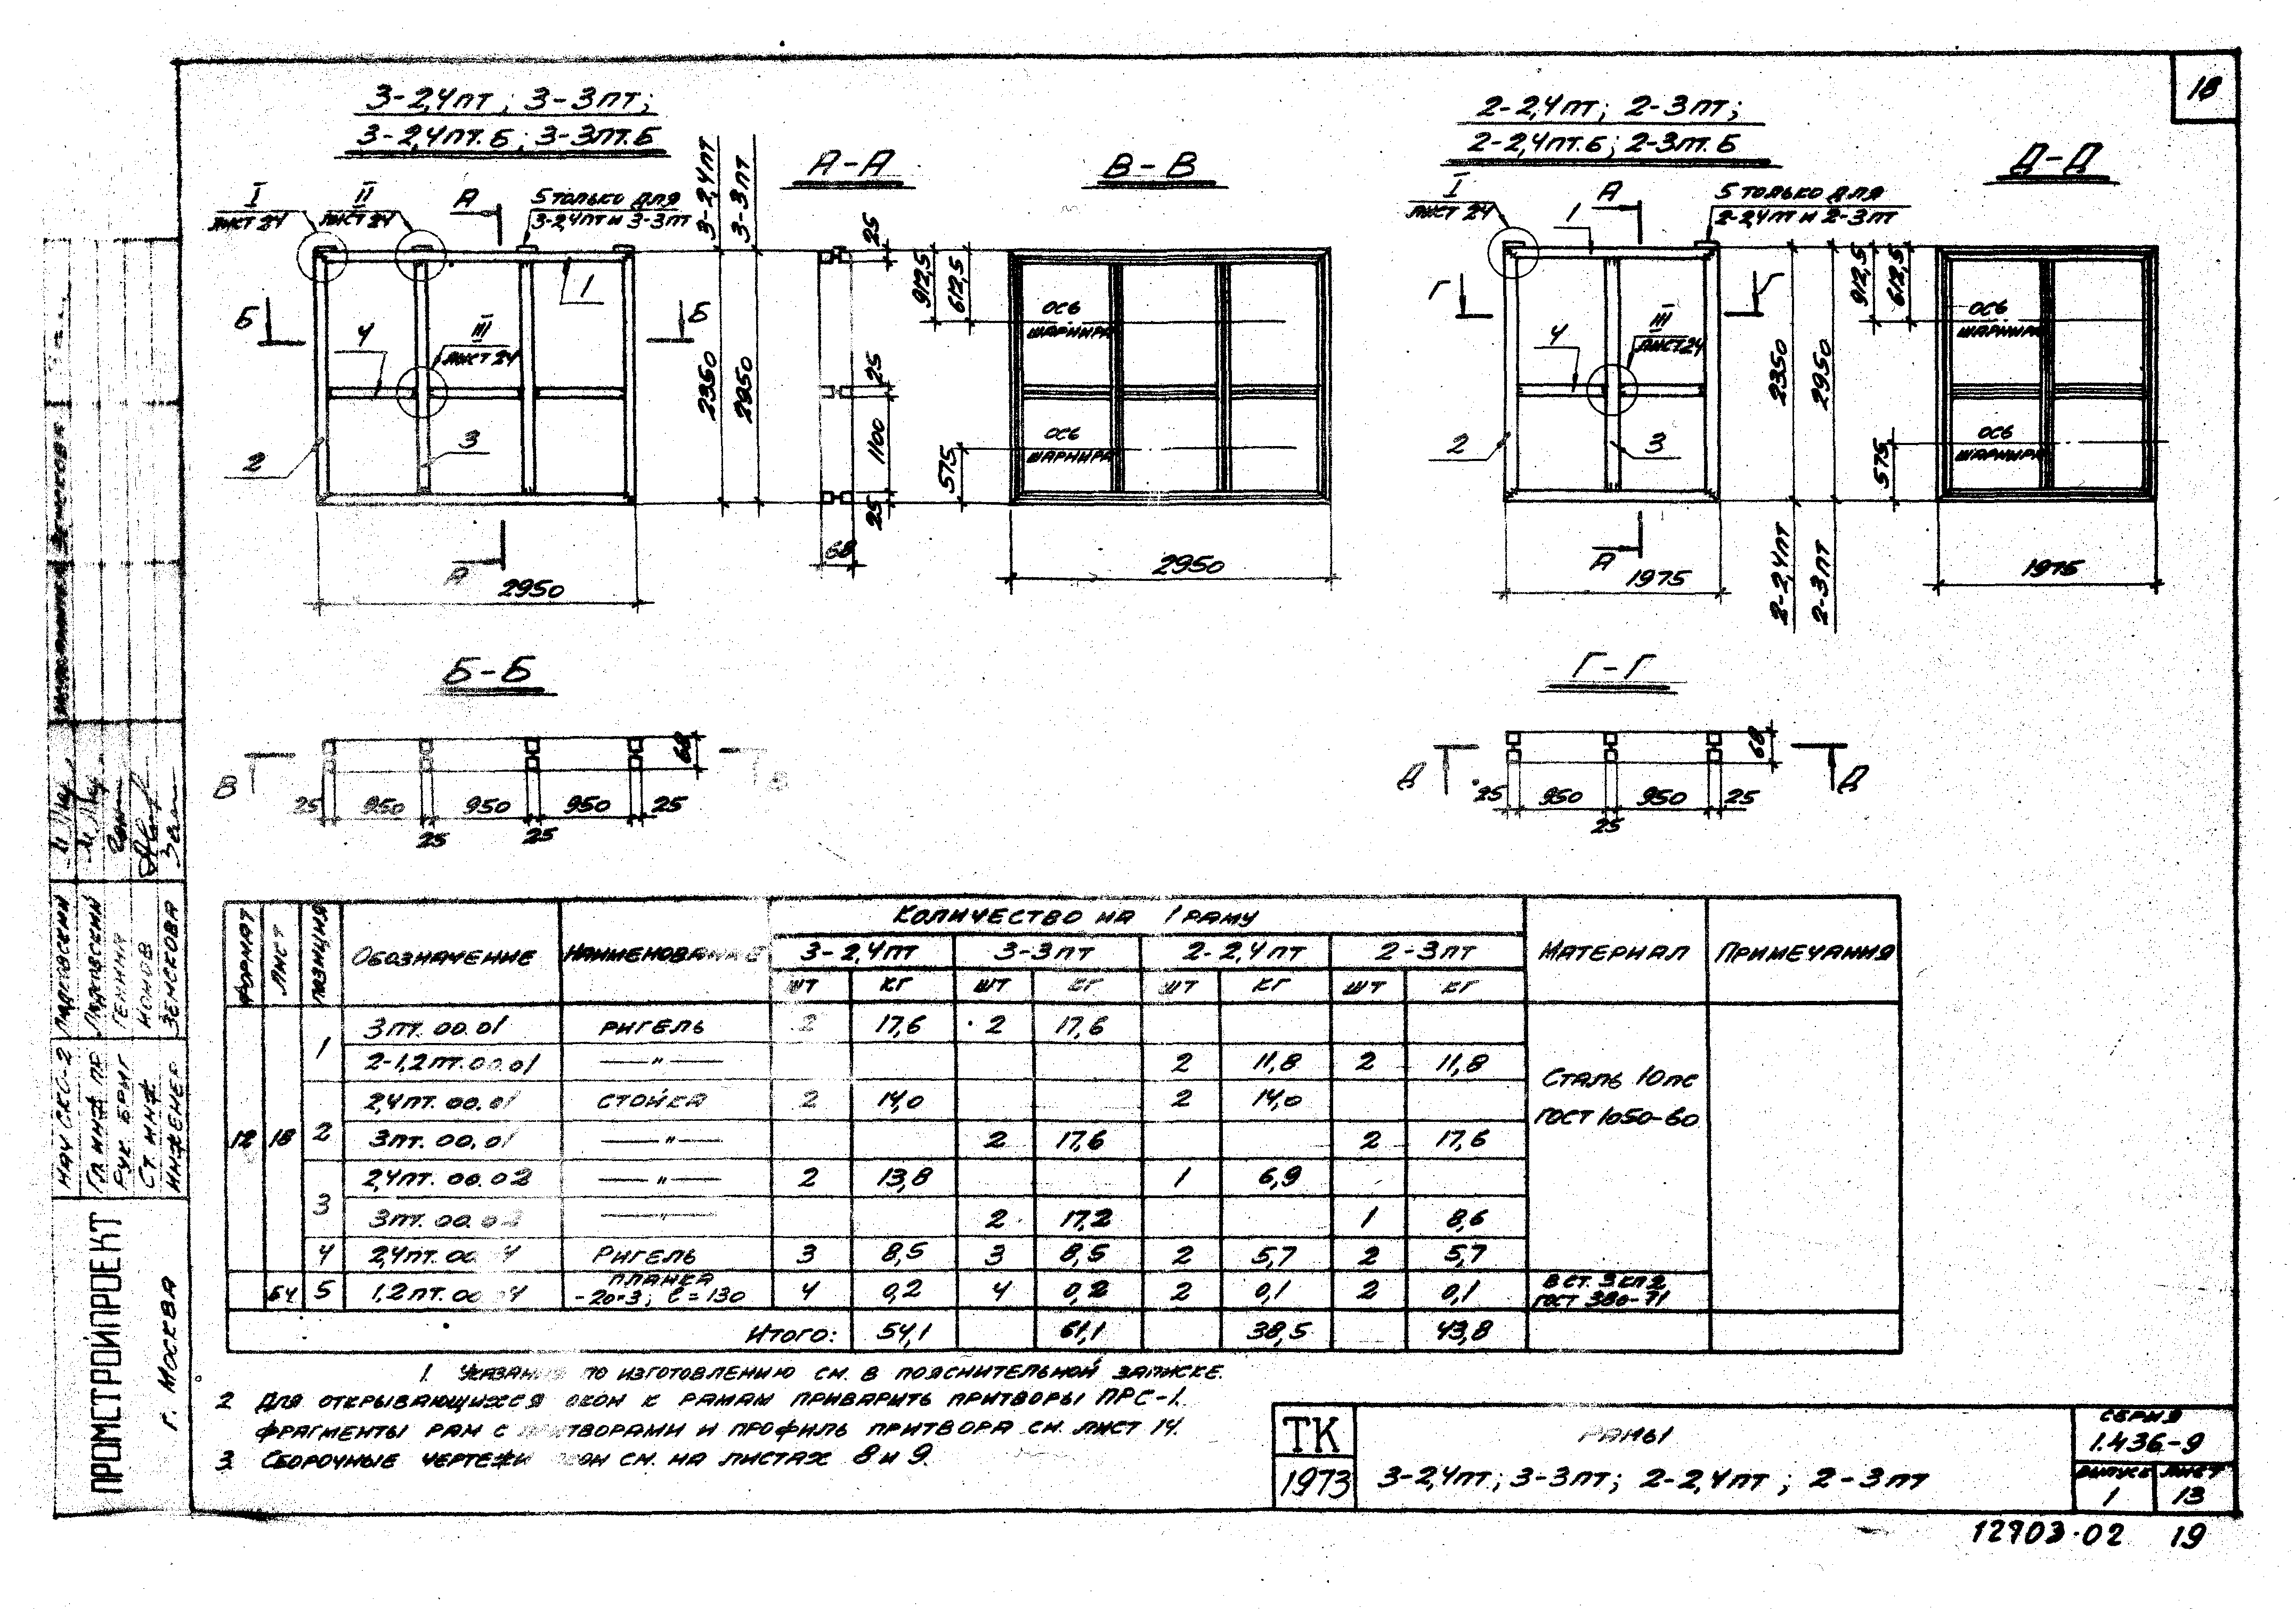 18
3-2,4пт; 3-3пт;
3-2,4пт.Б; 3-3пт.Б
I
лист 24
II
лист 24
А
5 только для
3-2,4пт и 3-3пт
3-2,4пт
3-3пт
1
Б
Б
4
III
лист 24
2
3
2350
2950
А
2950
А-А
25
25
1100
25
68
В-В
912,5
612,5
ось
шарнира
ось
шарнира
575
2950
2-2,4пт; 2-3пт;
2-2,4пт.Б; 2-3пт.Б
I
лист 24
1
А
5 только для
2-2,4пт и 2-3пт
Г
Г
4
III
лист 24
2
3
2350
2950
А
1975
2-2,4пт
2-3пт
Д-Д
912,5
612,5
ось
шарнира
ось
шарнира
575
1975
Б-Б
В
В
68
25 950 950 950 25
25 25
Г-Г
Д
Д
68
25 950 950 25
25
Формат Лист Позиция Обозначение Наименование Количество на 1 раму Материал Примечания
3-2,4пт 3-3пт 2-2,4пт 2-3пт
шт кг шт кг шт кг шт кг
12 18
1 3пт.00.01 ригель 2 17,6 2 17,6
2-1,2пт.00.01 —"— 2 11,8 2 11,8
2 2,4пт.00.01 стойка 2 14,0 2 14,0
3пт.00.01 —"— 2 17,6 2 17,6
3 2,4пт.00.02 —"— 2 13,8 1 6,9
3пт.00.02 —"— 2 17,2 1 8,6
4 2,4пт.00 4 Ригель 3 8,5 3 8,5 2 5,7 2 5,7
Сталь 10пс
ГОСТ 1050-60
БЧ 5 1,2пт.00 4 планка
-20×3; ℓ=130 4 0,2 4 0,2 2 0,1 2 0,1
В Ст.3кп2
ГОСТ 380-71
Итого: 54,1 61,1 38,5 43,8
1. Указания по изготовлению см. в пояснительной записке.
2 Для открывающихся окон к рамам приварить притворы ПРС-1.
Фрагменты рам с притворами и профиль притвора см. лист 14.
3. Сборочные чертежи окон см. на листах 8 и 9.
ТК
1973
Рамы
3-2,4пт; 3-3пт; 2-2,4пт; 2-3пт
Серия
1.436-9
выпуск лист
1 13
12703-02 19
ПРОМСТРОЙПРОЕКТ
г. Москва
Нач СКС-2
Гл инж пр
Рук бриг
Ст инж
Инженер
Генина
Ионов
Земскова